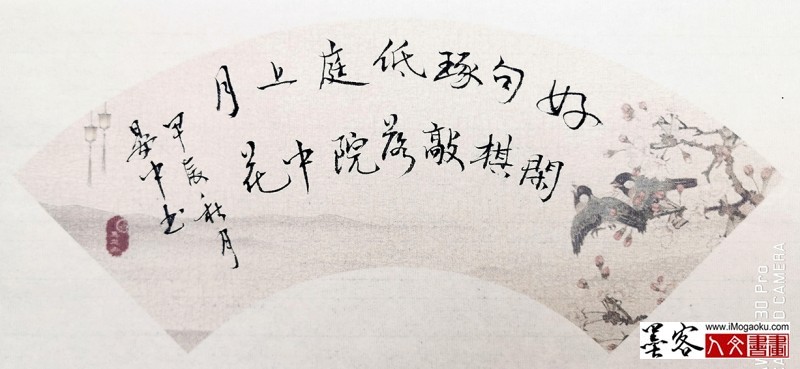 好句琢低庭上月
閑棋敲落院中花
甲辰秋月
中书
墨客
www.iMogaoku.com
人文書畫
Pro
CAMERA